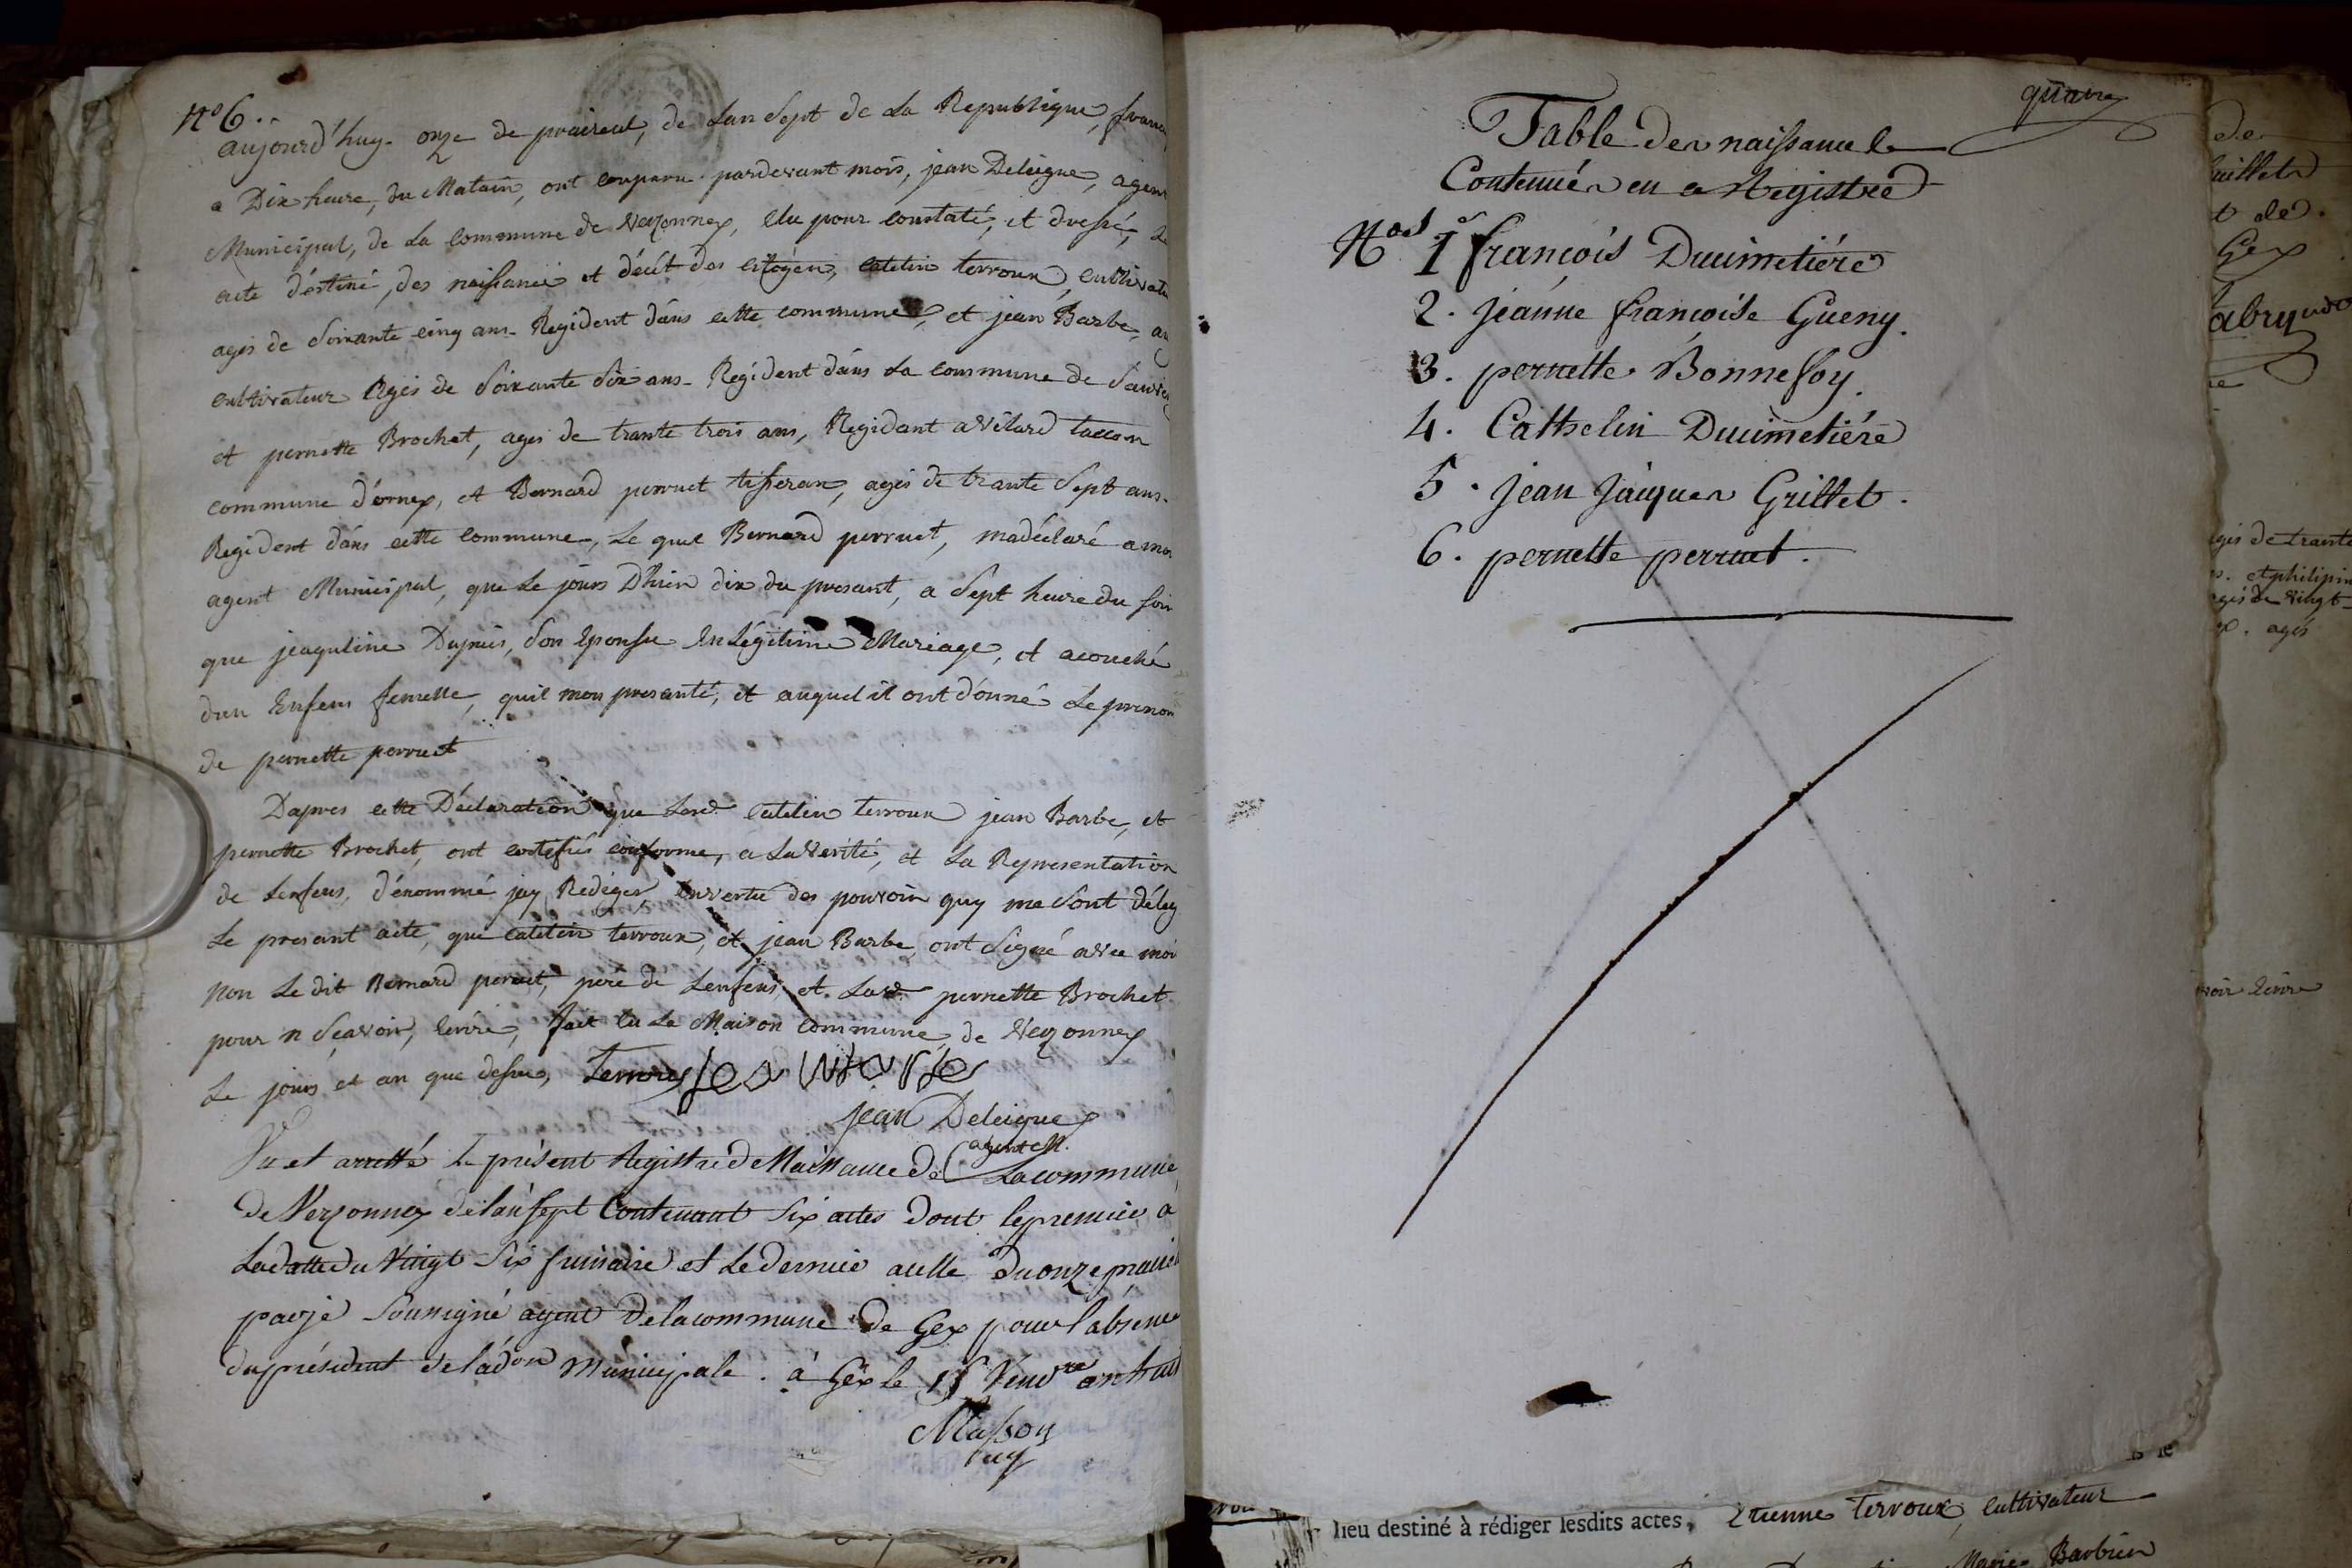 N° 6.
aujourd'huy. onze de praireal, de Lan Sept de La Republique franc
a Dix heure, du Matain, ont comparu pardevant mois, jean Deleigue, agent
Municipal, de La Commune de Vezonnex, élu pour constaté, et dressé, Le
acte déstiné, des naissance et décét des citoyen, catelin terroux, cultivate
agés de Soixante cinq ans. Regident dáns cette commune, et jean Barbe, au
cultivateur Agés de Soixante Six ans. Regident dáns La Commune de Sauve
et pernette Brochet, ages de trante trois ans, Regidant a vilard taccon
commune d'ornex, et Bernard perruet tisseran, agés de trante Sept ans.
Regident dáns cette Commune, Le quel Bernard perruet, madéclaré a moi
agent Municipal, que Le jours D'hier dix du presant, a Sept heure du soir
que jeaquline Dupuis, Son Epousse En Légitime Mariage, et acouché
dun Enfens femelle, quil mon presanté, et auquel il ont dónné Le prenom
de pernette perruet
Dapres cette Déclaration que Lesd. catelin terroux jean Barbe, et
pernette Brochet, ont certifiés conforme, a La Verité, et La Representation
de Lenfens, dénommé jay Rediger, En vertu des pouvoir quy me Sont délég
Le presant acte, que catelin terroux, et jean Barbe, ont Signé avec moi
non Le dit Bernard peruet, pere de Lenfens, et. Lad. pernette Brochet
pour n Sçavoir, Ecrire, fait En La Maison commune, de Vezonnex
Le jours et an que dessus,
jean Deleigue
agent M.
Vu et arretté Le présent Registre de Naissance de La commune
de Verzonnex de l'an sept Contenant Six actes Dont le premier a
La datte du Vingt Six frimaire et Le dernier a celle du onze prairi
par je Soussigné agent De la commune de Gex pour l'absence
du président de l'adon Municipale. à Gex le 15 Vendre an huit
Masson
quatre
Table des naissances
Contenués en ce Régistre
Nos 1 françois Ducimetiére
2. jeanne françoise Gueny.
3. pernette Bonnefoy.
4. Cathelin Ducimetiére
5. jean Jacques Grillet.
6. pernette perruet.
de
t de.
Gex
agés de trante
et philipin
agés de vingt
agés
voir Ecrire
lieu destiné à rédiger lesdits actes, Etienne Terroux, cultivateur
Marie Barbier